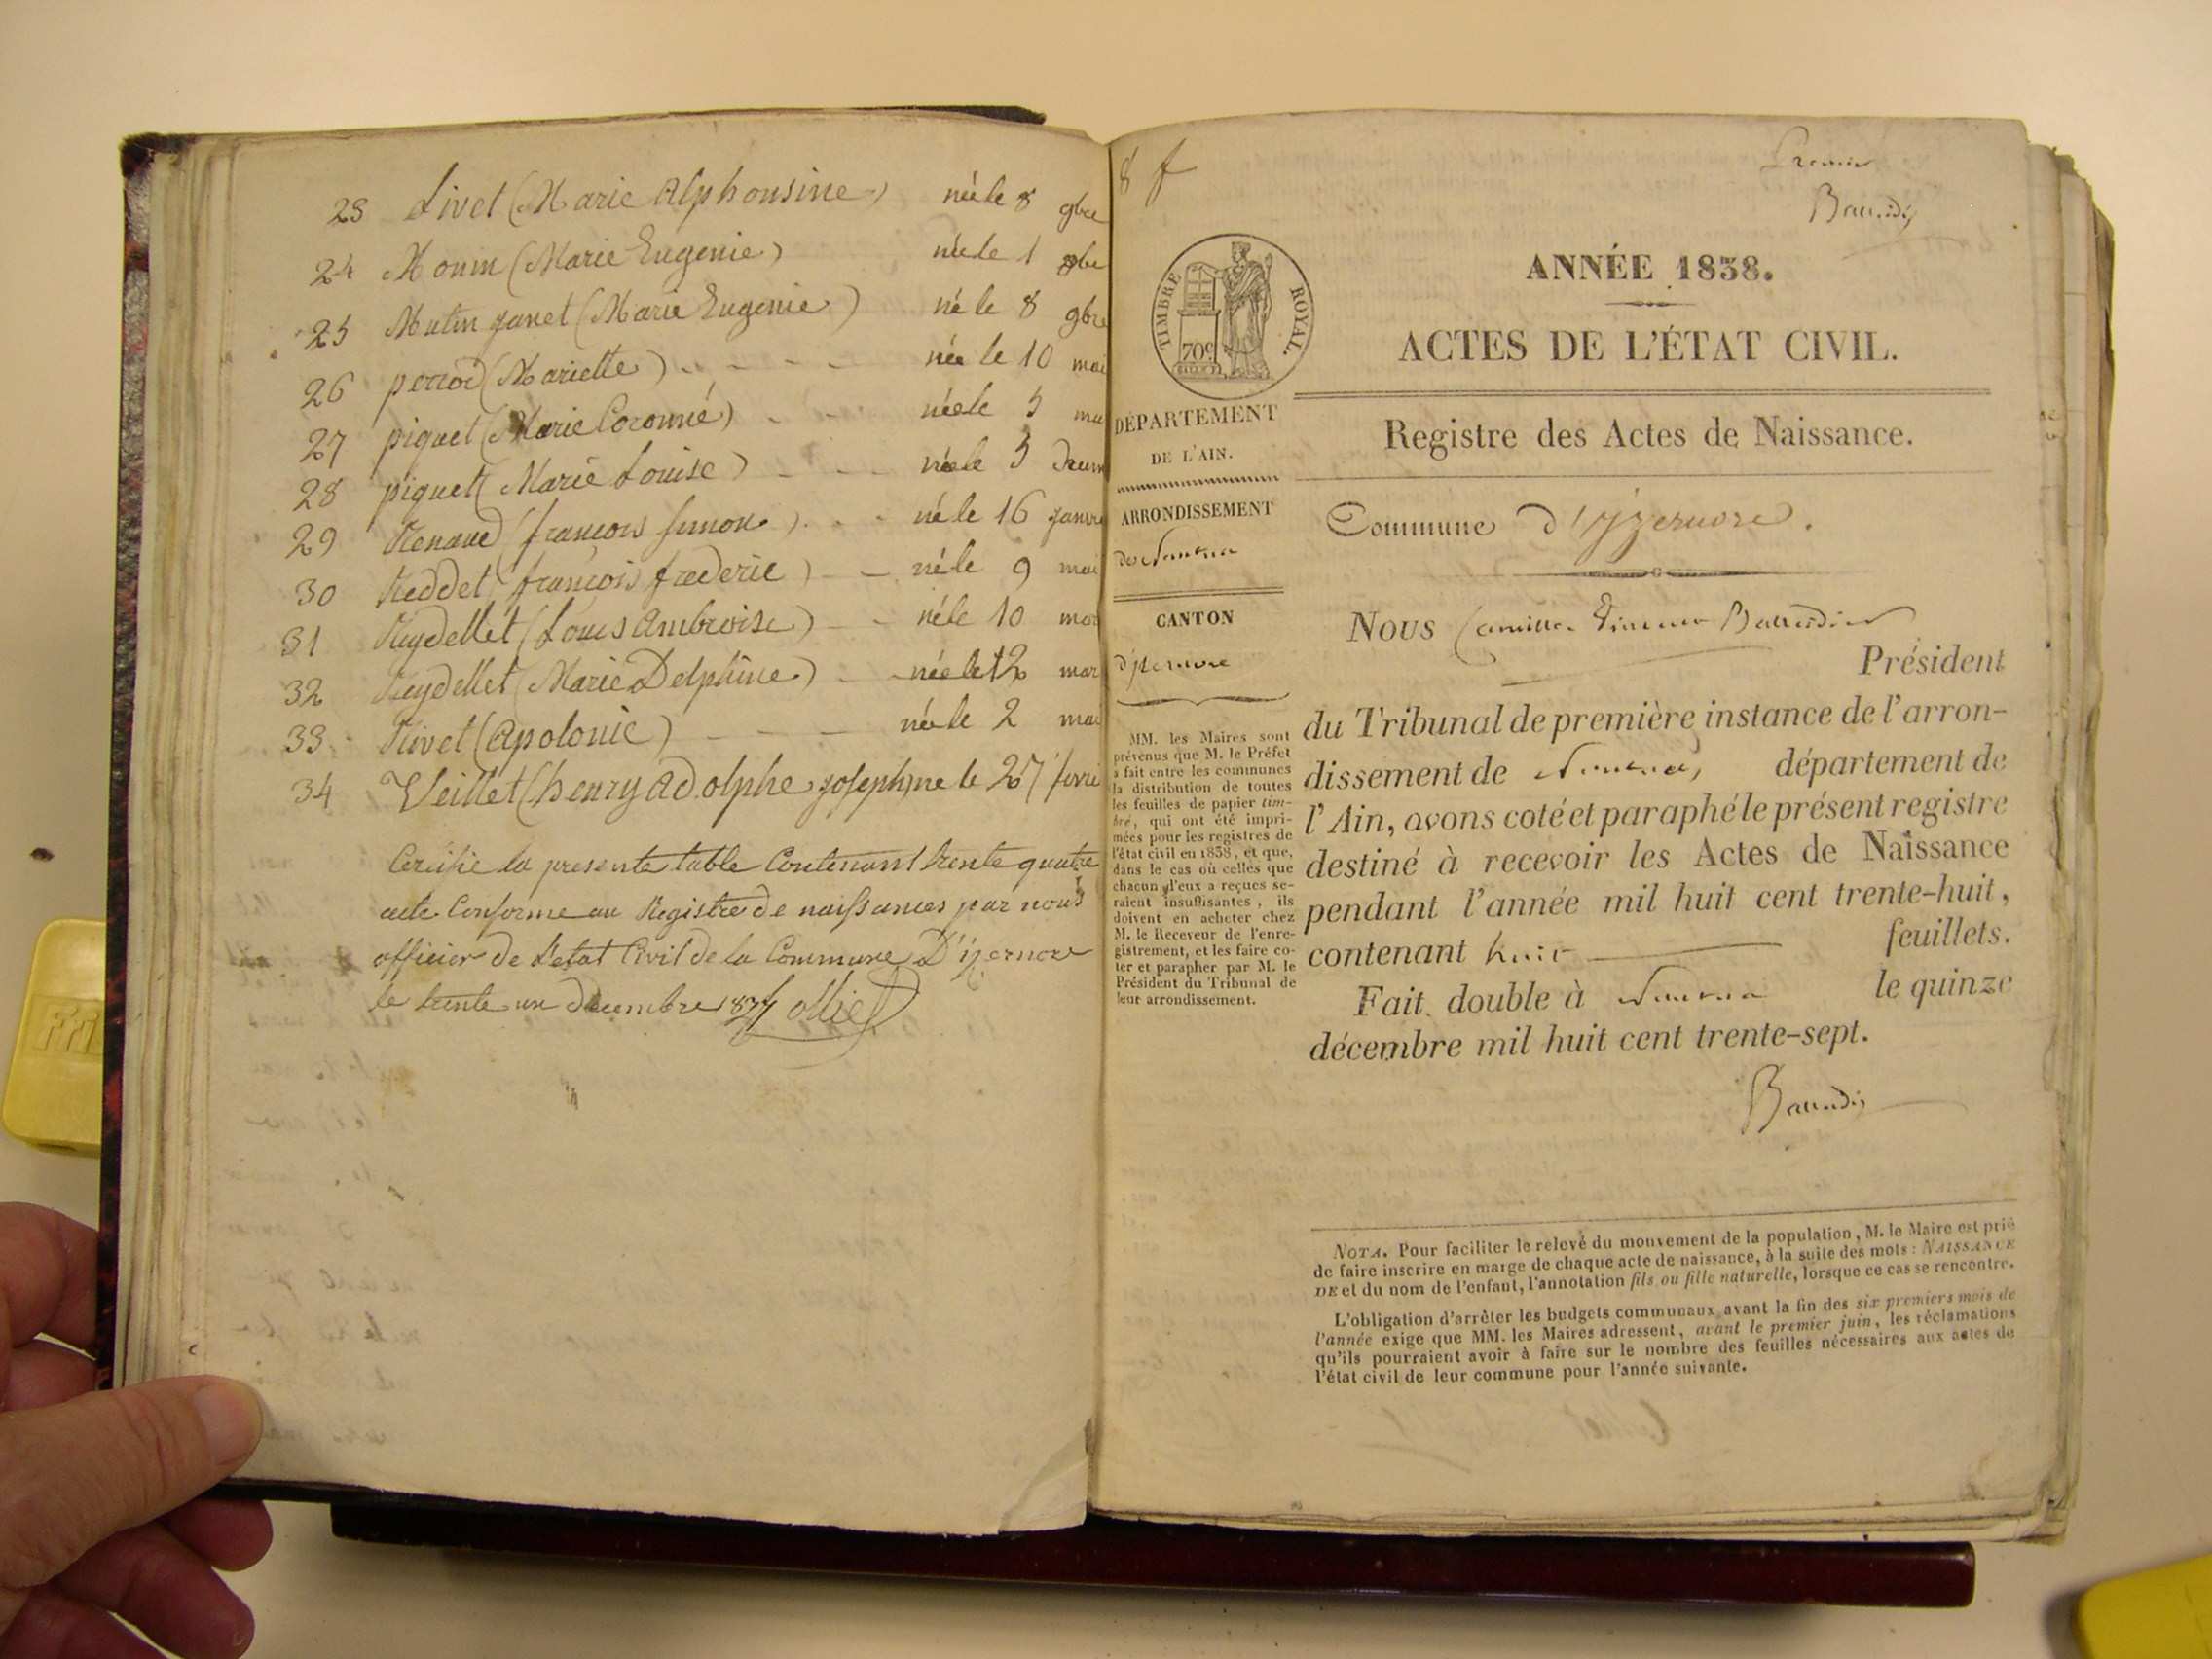 23 Livet (Marie Alphonsine) née le 8 9bre
24 Monin (Marie Eugenie) née le 1
25 Mutin janet (Marie Eugenie) né le 8 9bre
26 perrod (Mariette) née le 10 mai
27 piquet (Marie Coronné) née le 5
28 piquet (Marie Louise) née le 5
29 Renaud (francois simon) né le 16 janvie
30 Reddet (françois frederic) né le 9
31 Reydellet (Louis Ambroise) né le 10
32 Reydellet (Marie Delphine) née le 12
33 Rivet (Apolonie) née le 2
34 Veillet (henry adolphe joseph) ne le 27 fevrie
Certifie la presente table Contenant trente quatre
acte Conforme au Registre de naissances par nous
officier de l'etat Civil de la Commune D'izernore
le trente un decembre 1837
8 f
TIMBRE ROYAL.
70c
DÉPARTEMENT
DE L'AIN.
ARRONDISSEMENT
de Nantua
CANTON
d'izernore
MM. les Maires sont
prévenus que M. le Préfet
a fait entre les communes
la distribution de toutes
les feuilles de papier tim-
bré, qui ont été impri-
mées pour les registres de
l'état civil en 1838, et que,
dans le cas où celles que
chacun d'eux a reçues se-
raient insuffisantes, ils
doivent en acheter chez
M. le Receveur de l'enre-
gistrement, et les faire co-
ter et parapher par M. le
Président du Tribunal de
leur arrondissement.
Premier
ANNÉE 1838.
ACTES DE L'ÉTAT CIVIL.
Registre des Actes de Naissance.
Commune d'yzernore.
Nous Camille
Président
du Tribunal de première instance de l'arron-
dissement de Nantua, département de
l'Ain, avons coté et paraphé le présent registre
destiné à recevoir les Actes de Naissance
pendant l'année mil huit cent trente-huit,
contenant huit feuillets.
Fait double à Nantua le quinze
décembre mil huit cent trente-sept.
NOTA. Pour faciliter le relevé du mouvement de la population, M. le Maire est prié
de faire inscrire en marge de chaque acte de naissance, à la suite des mots : NAISSANCE
DE et du nom de l'enfant, l'annotation fils ou fille naturelle, lorsque ce cas se rencontre.
L'obligation d'arrêter les budgets communaux avant la fin des six premiers mois de
l'année exige que MM. les Maires adressent, avant le premier juin, les réclamations
qu'ils pourraient avoir à faire sur le nombre des feuilles nécessaires aux actes de
l'état civil de leur commune pour l'année suivante.